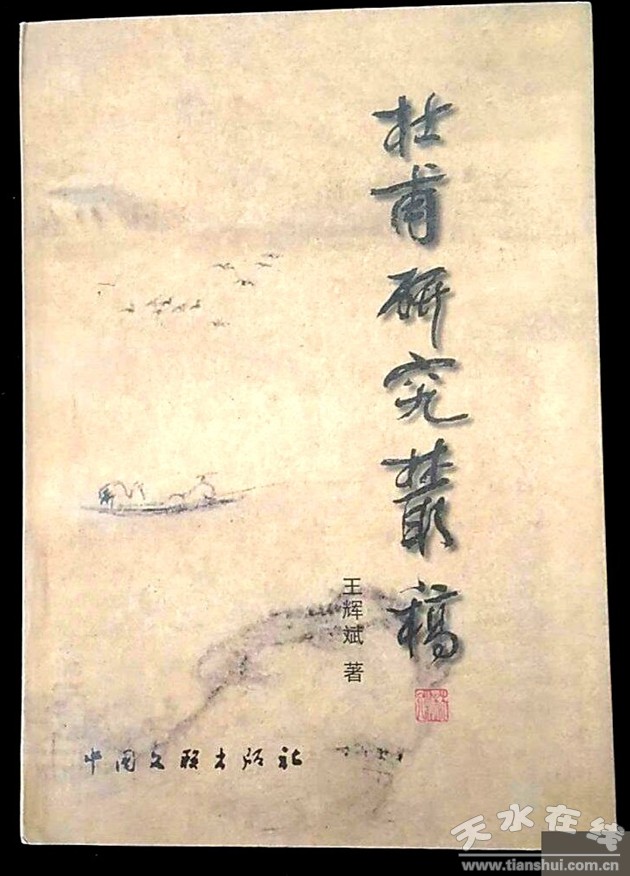 杜甫研究叢稿
王辉斌 著
中国文联出版社
天水在线
www.tianshui.com.cn